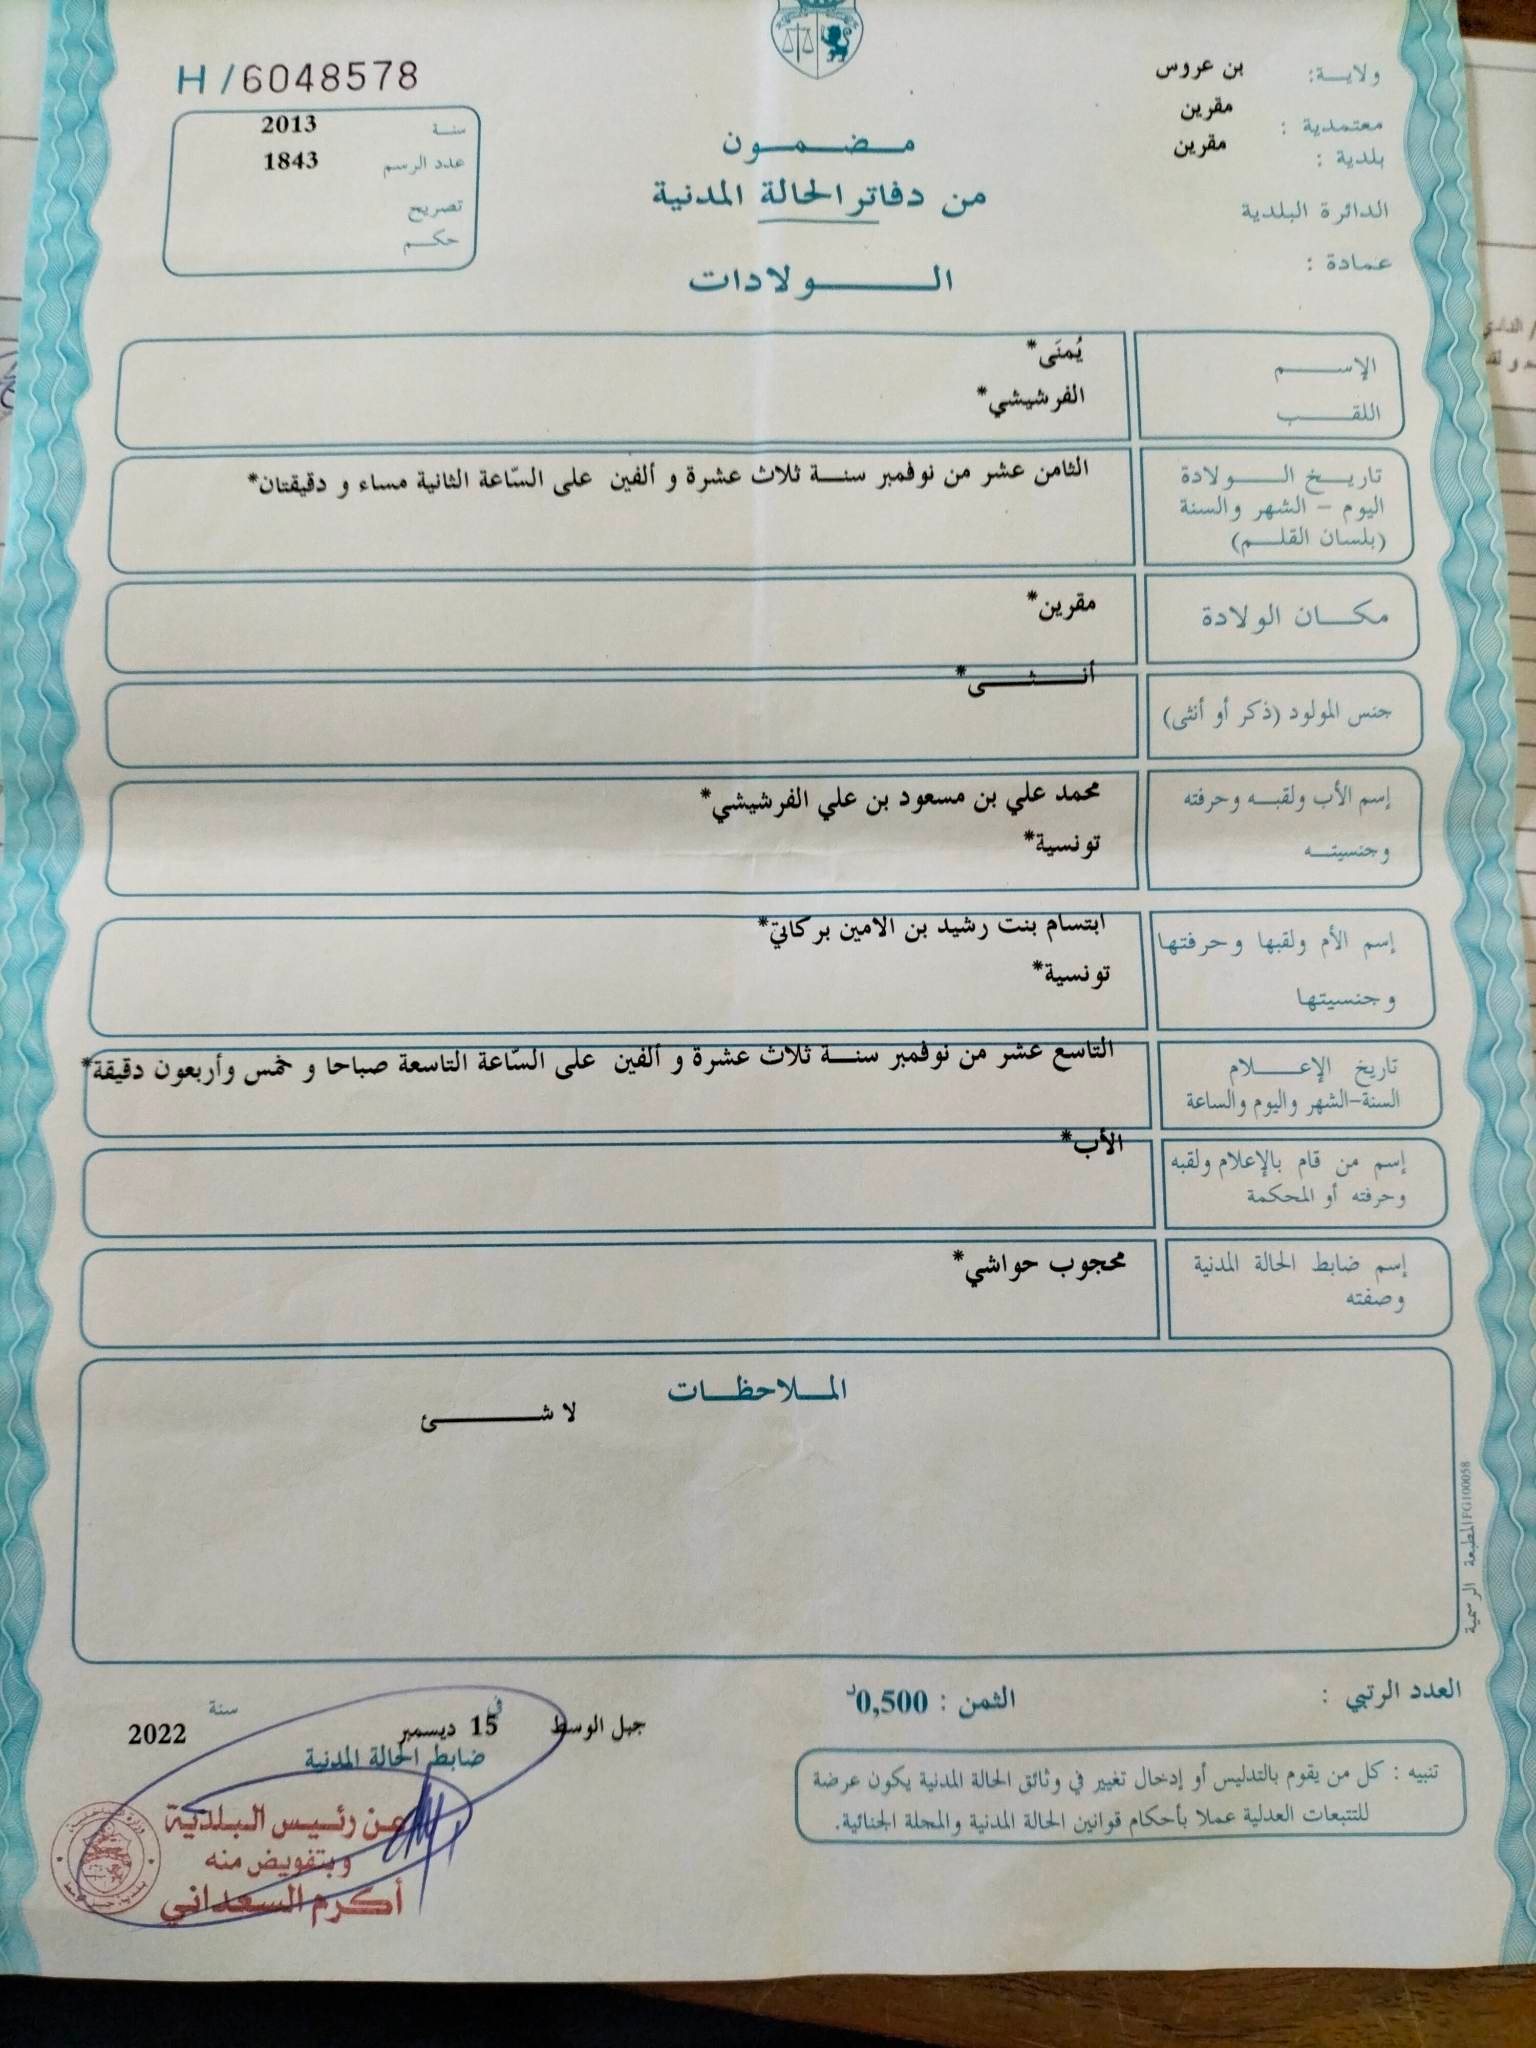 H/6048578
سنة 2013
عدد الرسم 1843
تصريح
حكم
ولاية: بن عروس
معتمدية : مقرين
بلدية : مقرين
الدائرة البلدية
عمادة :
مضمون
من دفاتر الحالة المدنية
الولادات
الإسم يُمنَى*
اللقب الفرشيشي*
تاريخ الولادة
اليوم - الشهر والسنة
(بلسان القلم)
الثامن عشر من نوفمبر سنة ثلاث عشرة و ألفين على السّاعة الثانية مساء و دقيقتان*
مكان الولادة مقرين*
جنس المولود (ذكر أو أنثى) أنثى*
إسم الأب ولقبه وحرفته محمد علي بن مسعود بن علي الفرشيشي*
وجنسيته تونسية*
إسم الأم ولقبها وحرفتها ابتسام بنت رشيد بن الامين بركاتي*
وجنسيتها تونسية*
تاريخ الإعلام
السنة-الشهر واليوم والساعة
التاسع عشر من نوفمبر سنة ثلاث عشرة و ألفين على السّاعة التاسعة صباحا و خمس وأربعون دقيقة*
إسم من قام بالإعلام ولقبه الأب*
وحرفته أو المحكمة
إسم ضابط الحالة المدنية محجوب حواشي*
وصفته
الملاحظات
لا شئ
المطبعة الرسمية FG100058
العدد الرتبي :
الثمن : 0,500د
جبل الوسط في 15 ديسمبر سنة 2022
ضابط الحالة المدنية
عن رئيس البلدية
وبتفويض منه
أكرم السعداني
تنبيه : كل من يقوم بالتدليس أو إدخال تغيير في وثائق الحالة المدنية يكون عرضة
للتتبعات العدلية عملا بأحكام قوانين الحالة المدنية والمجلة الجنائية.